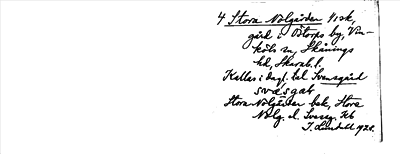 4 Stora Nolgården 1/1 sk,
gård i Östorps by, Vin-
köls sn, Skånings
hd, Skarab. l.
Kallas i dagl. tal Svensgård
svæsgaʈ
Stora Nolgården bek, Stora
Nolg. el. Svensg. kb
I. Lundahl 1928.